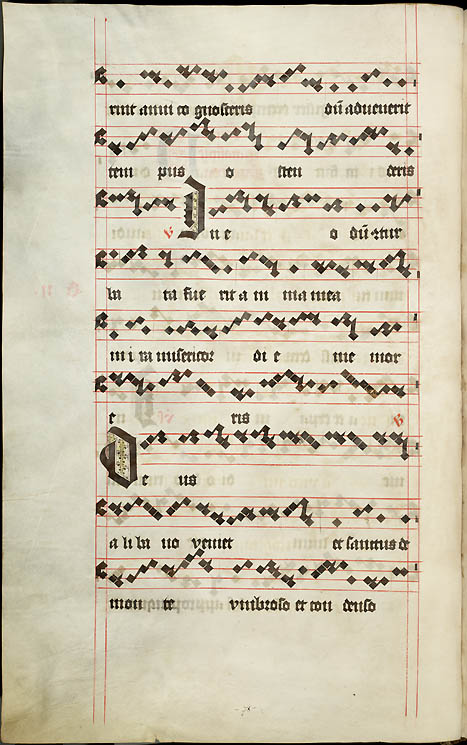 rint anni co gnosceris dū advenerit
tem pus o sten deris
℣ I n e o dū ↄtur
ba ta fue rit a ni ma mea
in i ra misericor di e me mor
e ris ℣
D e us
a li ba no veniet et sanctus de
mon te vmbroso et con denso